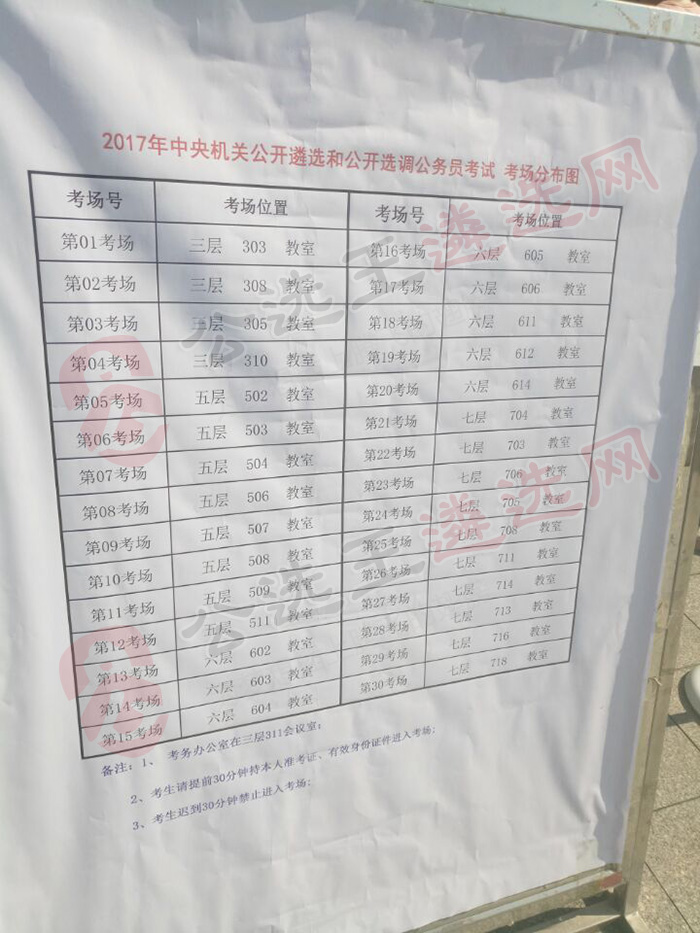 2017年中央机关公开遴选和公开选调公务员考试 考场分布图
考场号 考场位置 考场号 考场位置
第01考场 三层 303 教室 第16考场 六层 605 教室
第02考场 三层 308 教室 第17考场 六层 606 教室
第03考场 三层 305 教室 第18考场 六层 611 教室
第04考场 三层 310 教室 第19考场 六层 612 教室
第05考场 五层 502 教室 第20考场 六层 614 教室
第06考场 五层 503 教室 第21考场 七层 704 教室
第07考场 五层 504 教室 第22考场 七层 703 教室
第08考场 五层 506 教室 第23考场 七层 706 教室
第09考场 五层 507 教室 第24考场 七层 705 教室
第10考场 五层 508 教室 第25考场 七层 708 教室
第11考场 五层 509 教室 第26考场 七层 711 教室
第12考场 五层 511 教室 第27考场 七层 714 教室
第13考场 六层 602 教室 第28考场 七层 713 教室
第14考场 六层 603 教室 第29考场 七层 716 教室
第15考场 六层 604 教室 第30考场 七层 718 教室
备注：1、 考务办公室在三层311会议室；
2、考生请提前30分钟持本人准考证、有效身份证件进入考场；
3、考生迟到30分钟禁止进入考场；
公选王遴选网
公选王遴选网